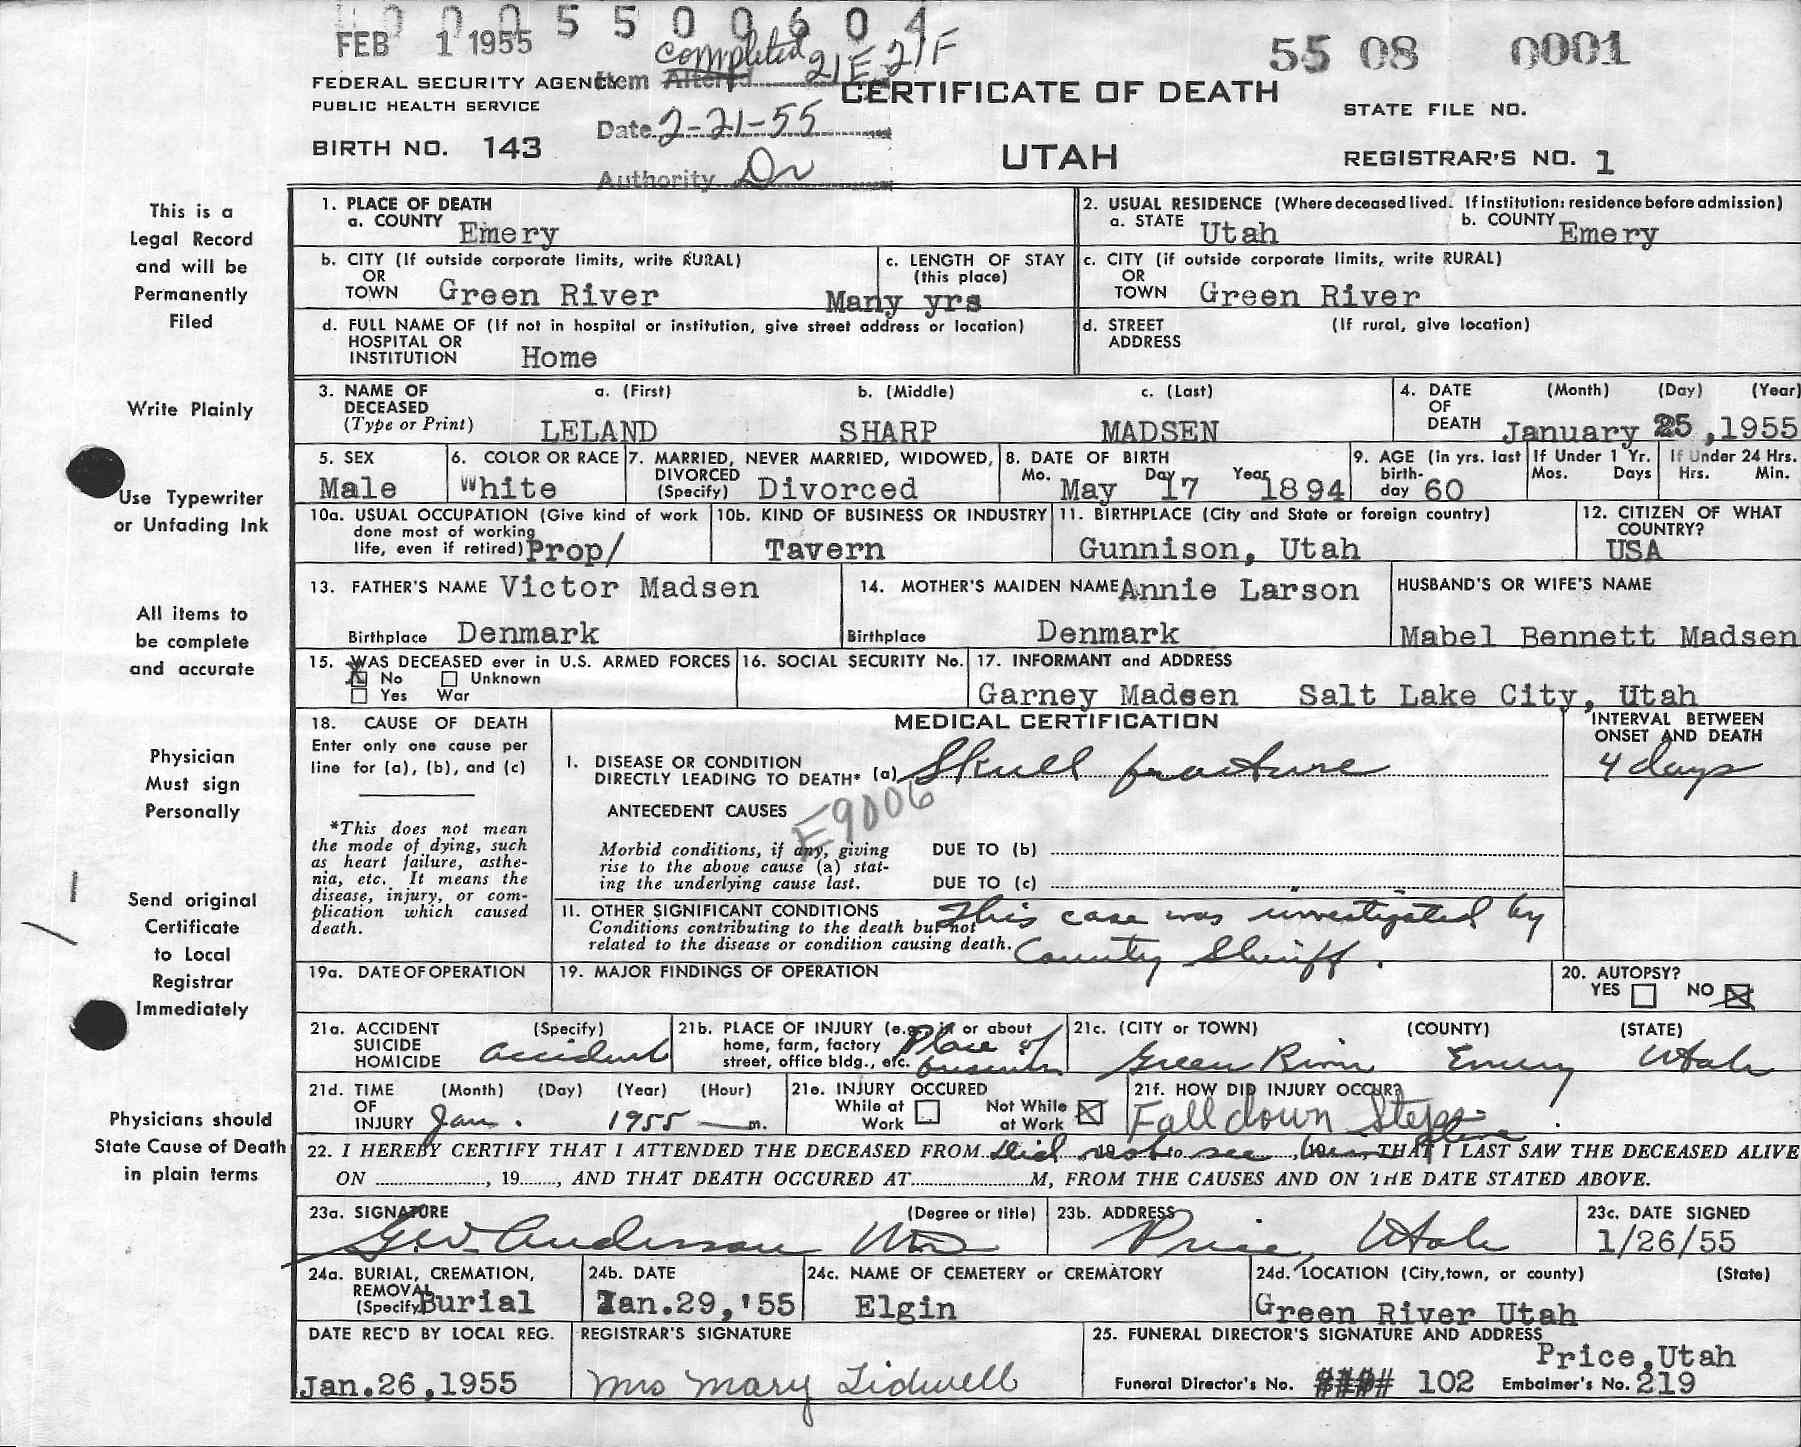 0 0 0 5 5 0 0 6 0 4
FEB 1 1955
55 08 0001
FEDERAL SECURITY AGENCY
PUBLIC HEALTH SERVICE
Item Altered completed 21E, 21F
CERTIFICATE OF DEATH
STATE FILE NO.
Date 2-21-55
BIRTH NO. 143
UTAH
REGISTRAR'S NO. 1
Authority Dr
This is a
Legal Record
and will be
Permanently
Filed
Write Plainly
Use Typewriter
or Unfading Ink
All items to
be complete
and accurate
Physician
Must sign
Personally
Send original
Certificate
to Local
Registrar
Immediately
Physicians should
State Cause of Death
in plain terms
1. PLACE OF DEATH
a. COUNTY Emery
2. USUAL RESIDENCE (Where deceased lived. If institution: residence before admission)
a. STATE Utah b. COUNTY Emery
b. CITY (If outside corporate limits, write RURAL)
OR
TOWN Green River
c. LENGTH OF STAY
(this place)
Many yrs
c. CITY (if outside corporate limits, write RURAL)
OR
TOWN Green River
d. FULL NAME OF (If not in hospital or institution, give street address or location)
HOSPITAL OR
INSTITUTION Home
d. STREET (If rural, give location)
ADDRESS
3. NAME OF a. (First) b. (Middle) c. (Last)
DECEASED
(Type or Print) LELAND SHARP MADSEN
4. DATE (Month) (Day) (Year)
OF
DEATH January 25, 1955
5. SEX
Male
6. COLOR OR RACE
White
7. MARRIED, NEVER MARRIED, WIDOWED,
DIVORCED
(Specify) Divorced
8. DATE OF BIRTH
Mo. May Day 17 Year 1894
9. AGE (in yrs. last
birth-
day 60
If Under 1 Yr.
Mos. Days
If Under 24 Hrs.
Hrs. Min.
10a. USUAL OCCUPATION (Give kind of work
done most of working
life, even if retired) Prop/
10b. KIND OF BUSINESS OR INDUSTRY
Tavern
11. BIRTHPLACE (City and State or foreign country)
Gunnison, Utah
12. CITIZEN OF WHAT
COUNTRY?
USA
13. FATHER'S NAME Victor Madsen
Birthplace Denmark
14. MOTHER'S MAIDEN NAME Annie Larson
Birthplace Denmark
HUSBAND'S OR WIFE'S NAME
Mabel Bennett Madsen
15. WAS DECEASED ever in U.S. ARMED FORCES
X No Unknown
Yes War
16. SOCIAL SECURITY No.
17. INFORMANT and ADDRESS
Garney Madsen Salt Lake City, Utah
18. CAUSE OF DEATH
Enter only one cause per
line for (a), (b), and (c)
*This does not mean
the mode of dying, such
as heart failure, asthe-
nia, etc. It means the
disease, injury, or com-
plication which caused
death.
MEDICAL CERTIFICATION
INTERVAL BETWEEN
ONSET AND DEATH
I. DISEASE OR CONDITION
DIRECTLY LEADING TO DEATH* (a) Skull fracture
4 days
ANTECEDENT CAUSES
E9006
Morbid conditions, if any, giving
rise to the above cause (a) stat-
ing the underlying cause last.
DUE TO (b)
DUE TO (c)
II. OTHER SIGNIFICANT CONDITIONS
Conditions contributing to the death but not
related to the disease or condition causing death.
This case was investigated by
County Sheriff.
19a. DATE OF OPERATION
19. MAJOR FINDINGS OF OPERATION
20. AUTOPSY?
YES NO X
21a. ACCIDENT (Specify)
SUICIDE
HOMICIDE accident
21b. PLACE OF INJURY (e.g., in or about
home, farm, factory
street, office bldg., etc.
Place of
business
21c. (CITY or TOWN) (COUNTY) (STATE)
Green River Emery Utah
21d. TIME (Month) (Day) (Year) (Hour)
OF
INJURY Jan. 1955 m.
21e. INJURY OCCURED
While at Work Not While at Work X
21f. HOW DID INJURY OCCUR?
Fall down Steps
22. I HEREBY CERTIFY THAT I ATTENDED THE DECEASED FROM did not see him alive THAT I LAST SAW THE DECEASED ALIVE
ON , 19 , AND THAT DEATH OCCURED AT M, FROM THE CAUSES AND ON THE DATE STATED ABOVE.
23a. SIGNATURE (Degree or title)
G.W. Anderson MD
23b. ADDRESS
Price, Utah
23c. DATE SIGNED
1/26/55
24a. BURIAL, CREMATION,
REMOVAL
(Specify) Burial
24b. DATE
Jan.29,'55
24c. NAME OF CEMETERY or CREMATORY
Elgin
24d. LOCATION (City, town, or county) (State)
Green River Utah
DATE REC'D BY LOCAL REG.
Jan.26,1955
REGISTRAR'S SIGNATURE
Mrs Mary Lidwell
25. FUNERAL DIRECTOR'S SIGNATURE AND ADDRESS
Price, Utah
Funeral Director's No. 102 Embalmer's No. 219